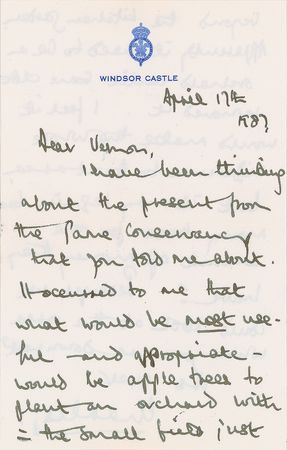 WINDSOR CASTLE
April 17th
1989
Dear Vernon,
I have been thinking
about the present from
the Game Conservancy
that you told me about.
It occurred to me that
what would be most use-
ful - and appropriate -
would be apple trees to
plant an orchard with
= the small field just